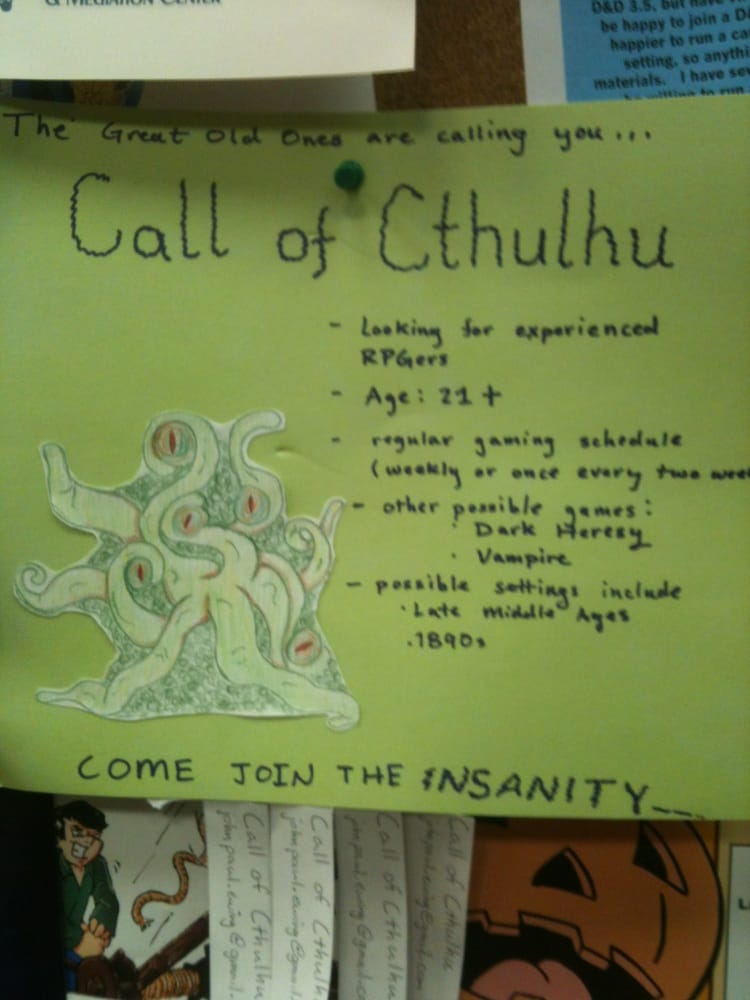 & MEDIATION CENTER
D&D 3.5, but have
be happy to join a D&
happier to run a ca
setting, so anythi
materials. I have sev
be willing to run
The Great Old Ones are calling you...
Call of Cthulhu
- Looking for experienced
RPGers
- Age: 21+
- regular gaming schedule
(weekly or once every two week
- other possible games:
· Dark Heresy
· Vampire
- possible settings include
· Late Middle Ages
· 1890s
COME JOIN THE INSANITY...
Call of Cthulhu
john.paul.ewing@gmail.
Call of Cthulh
john.paul.ewing@gmail.
Call of Cthulhu
paul.ewing@gmail.co
Call of Cthulhu
paul.ewing@gmail.com